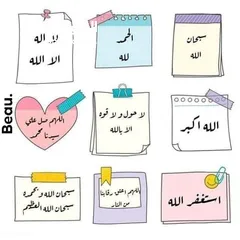 لا اله
الا الله
الحمد
لله
سبحان
الله
Beau.
اللهم صل على
سيدنا محمد
لا حول ولا قوة
الا بالله
الله اكبر
سبحان الله و بحمده
سبحان الله العظيم
اللهم اعتق رقابنا
من النار
استغفر الله